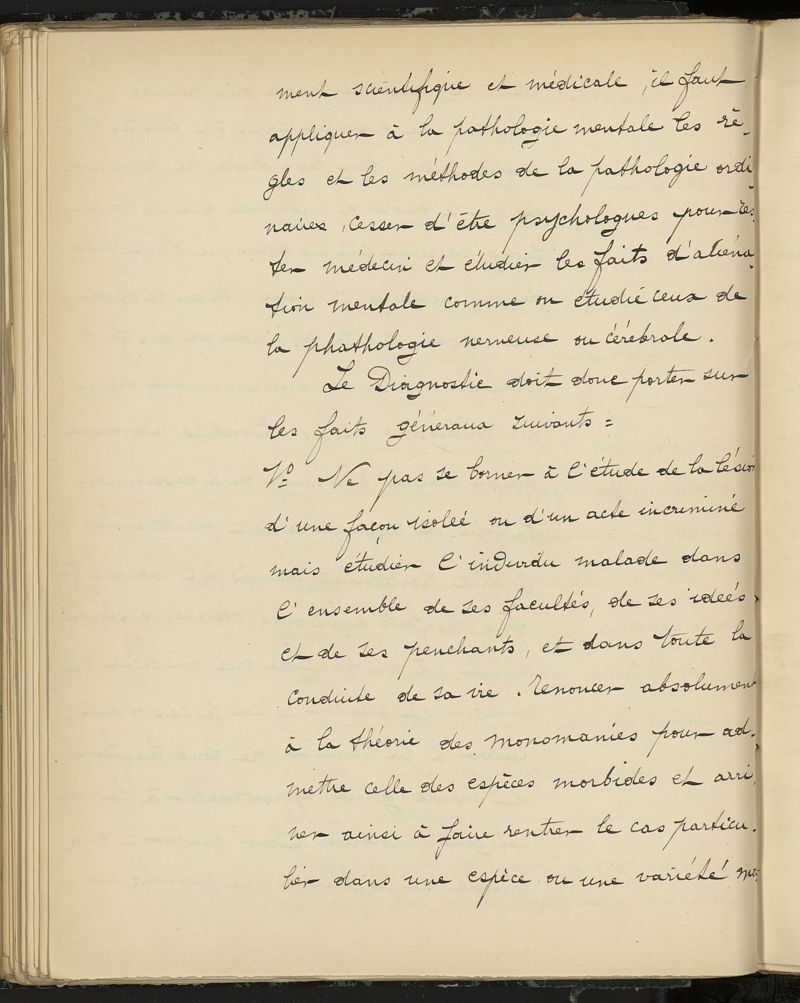 ment scientifique et médicale, il faut
appliquer à la pathologie mentale les rè-
gles et les méthodes de la pathologie ordi
naires, cesser d'être psychologues pour res-
ter médecin et étudier les faits d'aliéna-
tion mentale comme on étudié ceux de
la phathologie nerveuse ou cérébrale.
Le Diagnostic doit donc porter sur
les faits généraux suivants =
1º Ne pas se borner à l'étude de la lésion
d'une façon isoleé ou d'un acte incriminé
mais étudier l'individu malade dans
l'ensemble de ses facultés, de ses ideés,
et de ses penchants, et dans toute la
conduite de sa vie. Renoncer absolument
à la théorie des monomanies pour ad-
mettre celle des espèces morbides et arri-
ver ainsi à faire rentrer le cas particu-
lier dans une espèce ou une variété mo-